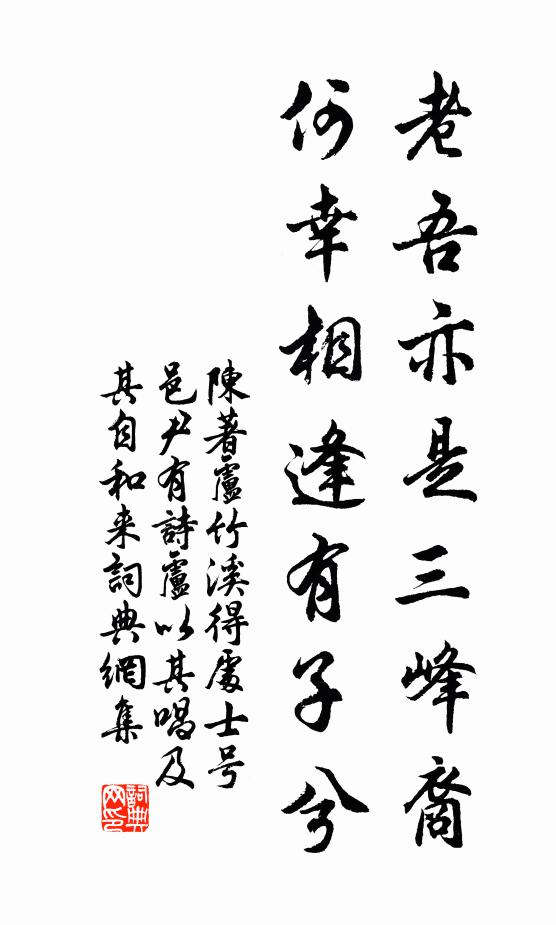 老吾亦是三峰裔
何幸相逢有子兮
陳著盧竹溪得處士号
邑尹有詩盧以其唱及
其自和来詞典網集
詞典网印